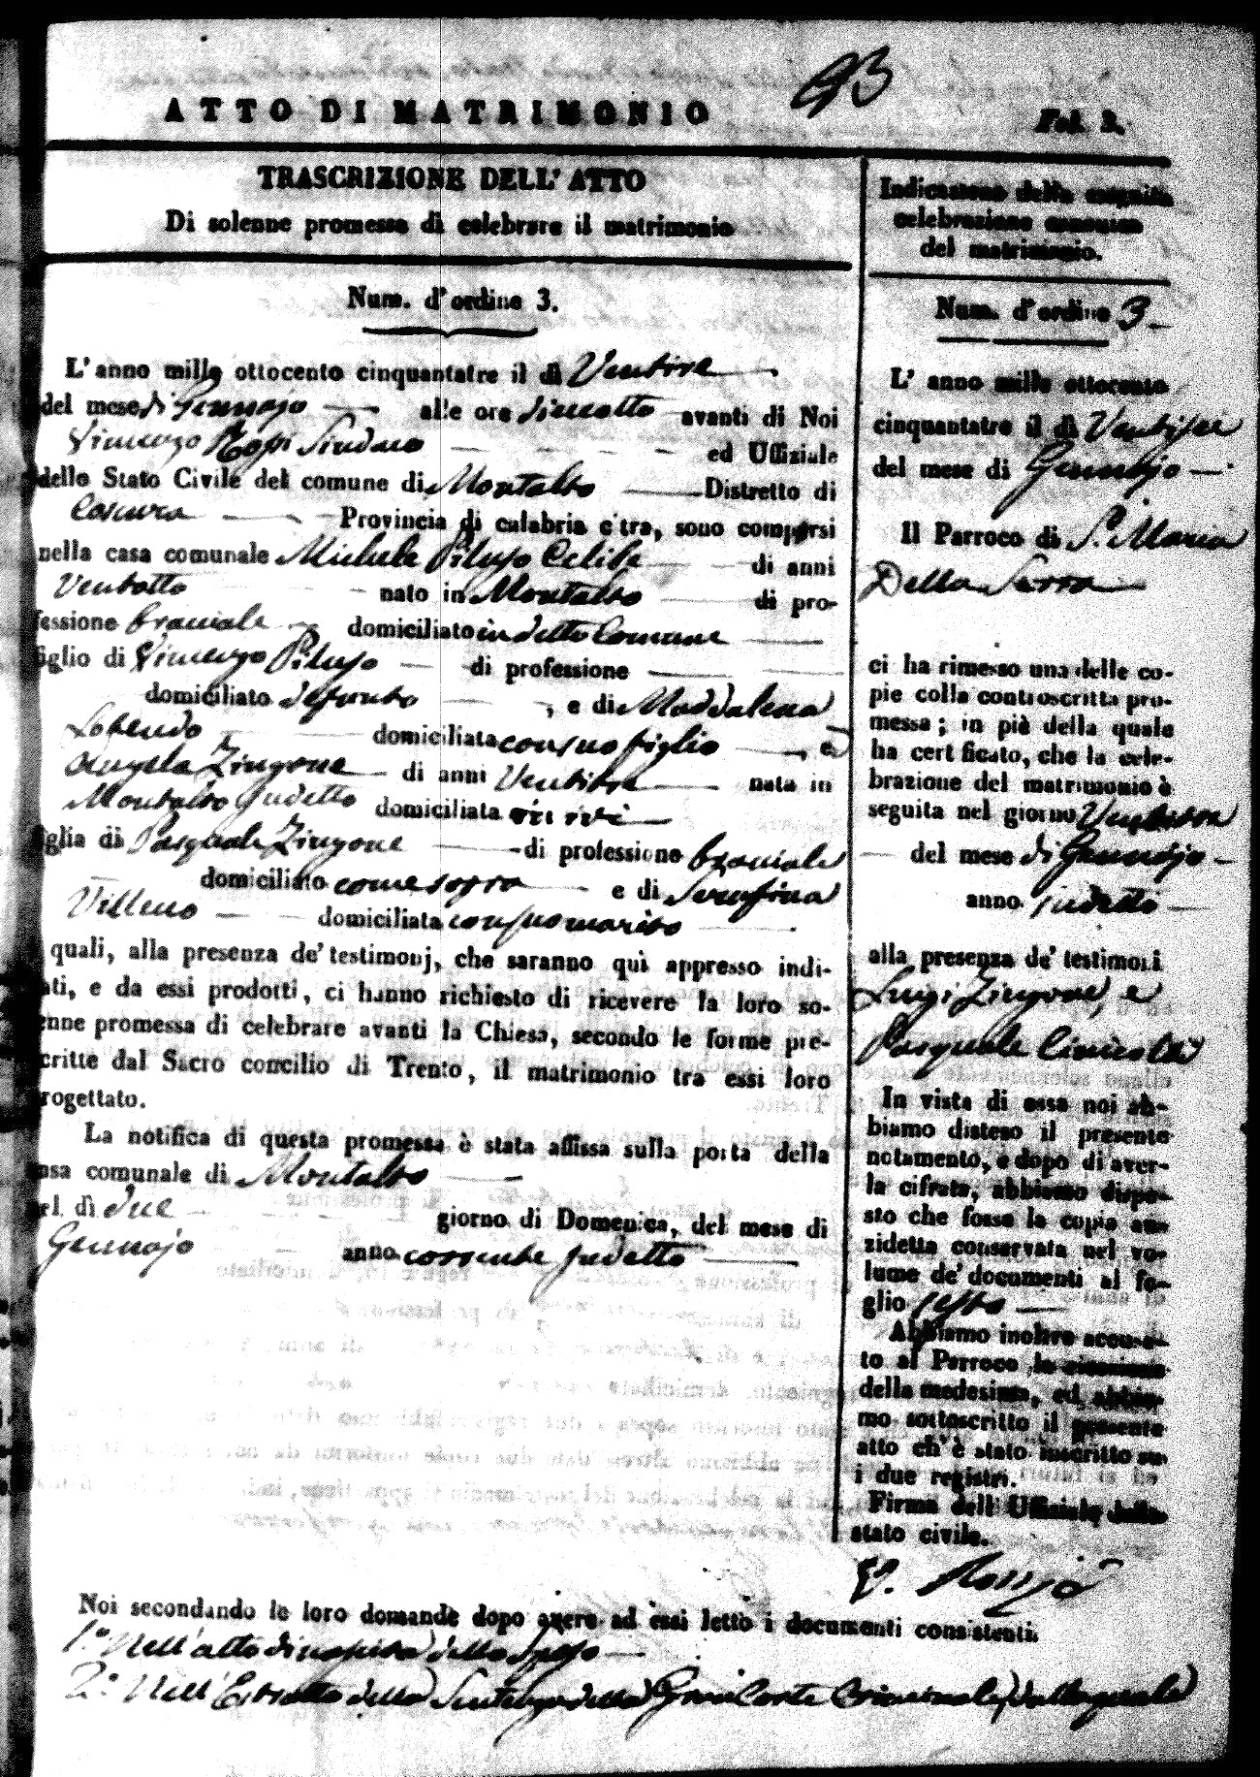 93
ATTO DI MATRIMONIO
Fol. 2.
TRASCRIZIONE DELL'ATTO
Di solenne promessa di celebrare il matrimonio
Num. d'ordine 3.
L'anno mille ottocento cinquantatre il dì Ventitre
del mese di Gennajo alle ore diecotto avanti di Noi
Vincenzo Sindaco ed Uffiziale
dello Stato Civile del comune di Montalto Distretto di
Cosenza Provincia di calabria citra, sono comparsi
nella casa comunale Michele Pilujo Celibe di anni
Ventotto nato in Montalto di pro-
fessione bracciale domiciliato in detto Comune
figlio di Vincenzo Pilujo di professione
domiciliato defonto, e di Maddalena
domiciliata con suo figlio, e
Angela Zingone di anni Ventitre nata in
Montalto sudetto domiciliata ivi
figlia di Pasquale Zingone di professione bracciale
domiciliato come sopra e di Serafina
Villeno domiciliata con suo marito
quali, alla presenza de' testimonj, che saranno quì appresso indi-
ati, e da essi prodotti, ci hanno richiesto di ricevere la loro so-
enne promessa di celebrare avanti la Chiesa, secondo le forme pre-
critte dal Sacro concilio di Trento, il matrimonio tra essi loro
rogettato.
La notifica di questa promessa è stata affissa sulla porta della
asa comunale di Montalto
el dì due giorno di Domenica, del mese di
Gennajo anno corrente sudetto
Noi secondando le loro domande dopo avere ad essi letto i documenti consistenti
1.° Nell'atto di nascita dello sposo
2.° Nell'Estratto della Sentenza della Gran Corte Criminale, dalla quale
Indicazione della seguita
celebrazione canonica
del matrimonio.
Num. d'ordine 3
L'anno mille ottocento
cinquantatre il dì
del mese di Gennajo
Il Parroco di S. Maria
Della Serra
ci ha rimesso una delle co-
pie colla controscritta pro-
messa; in piè della quale
ha certificato, che la cele-
brazione del matrimonio è
seguita nel giorno Ventitre
del mese di Gennajo
anno sudetto
alla presenza de' testimoni
Luigi Zingone, e
Pasquale
In vista di essa noi ab-
biamo disteso il presente
notamento, e dopo di aver-
la cifrata, abbiamo dispo-
sto che fosse la copia an-
zidetta conservata nel vo-
lume de' documenti al fo-
glio sesto
Abbiamo inoltre accusa-
to al Parroco la ricezione
della medesima, ed abbia-
mo sottoscritto il presente
atto ch'è stato inscritto su
i due registri.
Firma dell'Uffiziale dello
stato civile.